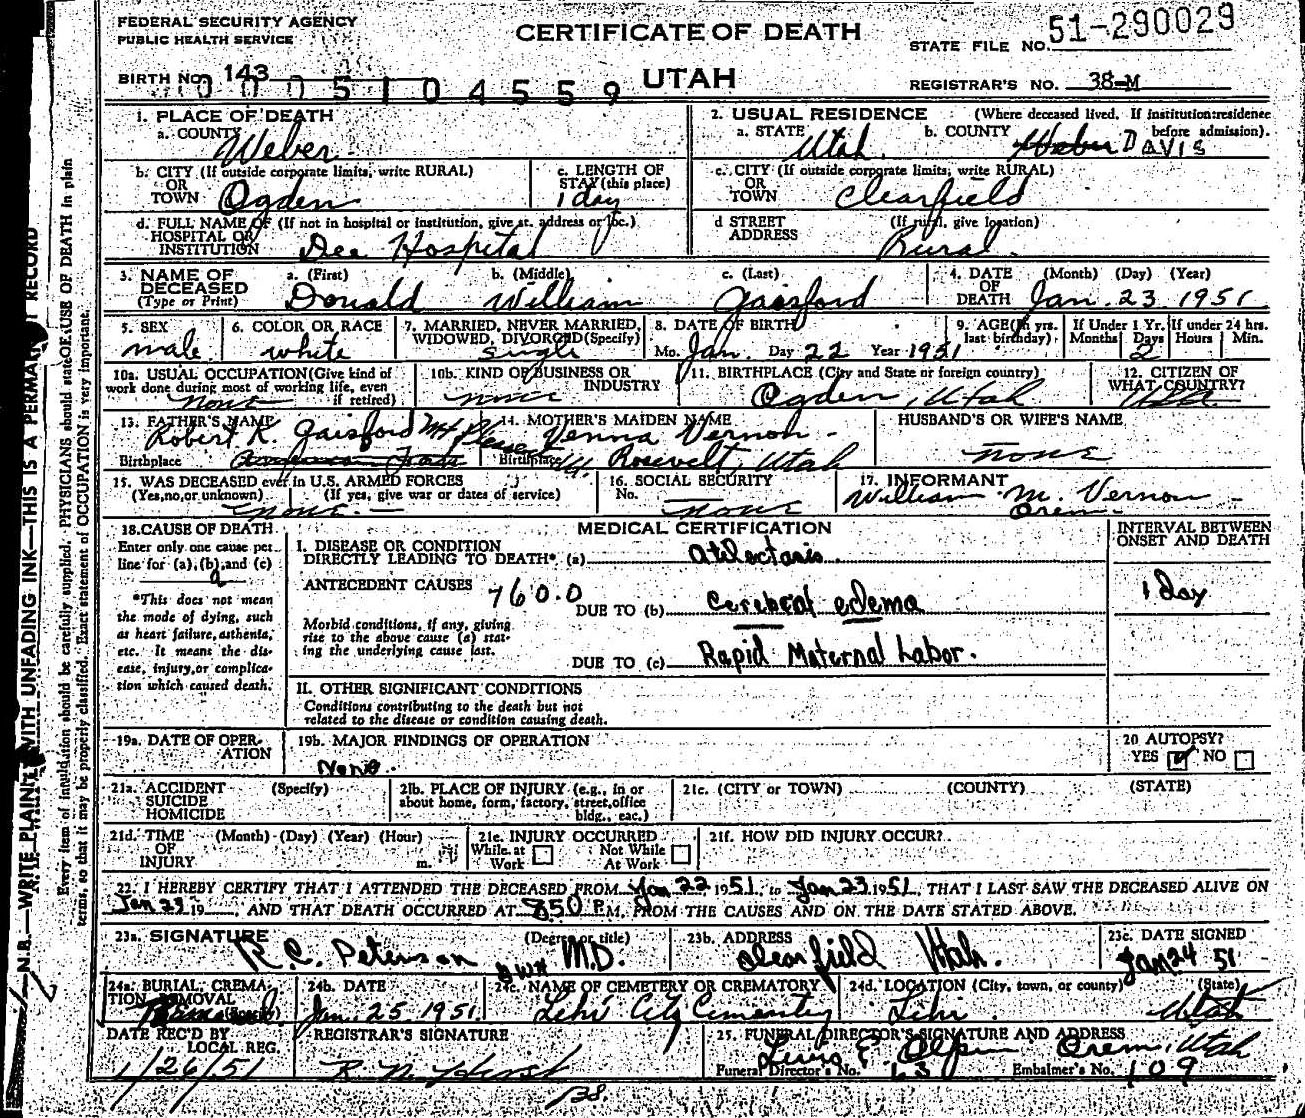 FEDERAL SECURITY AGENCY
PUBLIC HEALTH SERVICE
CERTIFICATE OF DEATH
STATE FILE NO. 51-290029
BIRTH NO. 143
0005104559
UTAH
REGISTRAR'S NO. 38-M
1. PLACE OF DEATH
a. COUNTY Weber
2. USUAL RESIDENCE (Where deceased lived. If institution: residence before admission).
a. STATE Utah b. COUNTY Weber DAVIS
b. CITY (If outside corporate limits, write RURAL) OR TOWN Ogden
c. LENGTH OF STAY (this place) 1 day
c. CITY (If outside corporate limits, write RURAL) OR TOWN Clearfield
d. FULL NAME OF (If not in hospital or institution, give st. address or loc.) HOSPITAL OR INSTITUTION Dee Hospital
d STREET ADDRESS (If rural, give location) Rural
3. NAME OF DECEASED (Type or Print)
a. (First) Donald b. (Middle) William c. (Last) Gaisford
4. DATE OF DEATH (Month) (Day) (Year) Jan. 23 1951
5. SEX male
6. COLOR OR RACE white
7. MARRIED, NEVER MARRIED, WIDOWED, DIVORCED (Specify) single
8. DATE OF BIRTH Mo. Jan. Day 22 Year 1951
9. AGE (In yrs. last birthday)
If Under 1 Yr. Months Days 2
If under 24 hrs. Hours Min.
10a. USUAL OCCUPATION (Give kind of work done during most of working life, even if retired) none
10b. KIND OF BUSINESS OR INDUSTRY none
11. BIRTHPLACE (City and State or foreign country) Ogden, Utah
12. CITIZEN OF WHAT COUNTRY? USA
13. FATHER'S NAME Robert K. Gaisford
Birthplace American Fork Mt Pleasant U.
14. MOTHER'S MAIDEN NAME Venna Vernon
Birthplace Rosevelt, Utah
HUSBAND'S OR WIFE'S NAME none
15. WAS DECEASED ever in U.S. ARMED FORCES
(Yes, no, or unknown) (If yes, give war or dates of service) none
16. SOCIAL SECURITY No. none
17. INFORMANT William M. Vernon
Orem
18. CAUSE OF DEATH
Enter only one cause per line for (a), (b), and (c)
a
*This does not mean the mode of dying, such as heart failure, asthenia, etc. It means the disease, injury, or complication which caused death.
MEDICAL CERTIFICATION
I. DISEASE OR CONDITION DIRECTLY LEADING TO DEATH* (a) Atelectasis
ANTECEDENT CAUSES 760.0
DUE TO (b) Cerebral edema
Morbid conditions, if any, giving rise to the above cause (a) stating the underlying cause last.
DUE TO (c) Rapid Maternal Labor.
INTERVAL BETWEEN ONSET AND DEATH
1 day
II. OTHER SIGNIFICANT CONDITIONS
Conditions contributing to the death but not related to the disease or condition causing death.
19a. DATE OF OPERATION
19b. MAJOR FINDINGS OF OPERATION
None.
20 AUTOPSY?
YES NO
21a. ACCIDENT SUICIDE HOMICIDE (Specify)
21b. PLACE OF INJURY (e.g., in or about home, form, factory, street, office bldg., eac.)
21c. (CITY or TOWN) (COUNTY) (STATE)
21d. TIME OF INJURY (Month) (Day) (Year) (Hour) m.
21e. INJURY OCCURRED While at Work Not While At Work
21f. HOW DID INJURY OCCUR?
22. I HEREBY CERTIFY THAT I ATTENDED THE DECEASED FROM Jan 22 1951, to Jan 23 1951, THAT I LAST SAW THE DECEASED ALIVE ON
Jan 23 19 , AND THAT DEATH OCCURRED AT 850 P.M. FROM THE CAUSES AND ON THE DATE STATED ABOVE.
23a. SIGNATURE (Degree or title) R. C. Peterson M.D.
23b. ADDRESS Clearfield Utah.
23c. DATE SIGNED Jan 24 51
24a. BURIAL, CREMATION, REMOVAL (Specify) Removal
24b. DATE Jan. 25, 1951
24c. NAME OF CEMETERY OR CREMATORY Lehi City Cementry
24d. LOCATION (City, town, or county) (State) Lehi. Utah
DATE REC'D BY LOCAL REG. 1/26/51
REGISTRAR'S SIGNATURE
25. FUNERAL DIRECTOR'S SIGNATURE AND ADDRESS Orem, Utah
Funeral Director's No. Embalmer's No. 109
138.
N.B.—WRITE PLAINLY WITH UNFADING INK—THIS IS A PERMANENT RECORD
Every item of information should be carefully supplied. PHYSICIANS should state CAUSE OF DEATH in plain
terms, so that it may be properly classified. Exact statement of OCCUPATION is very important.